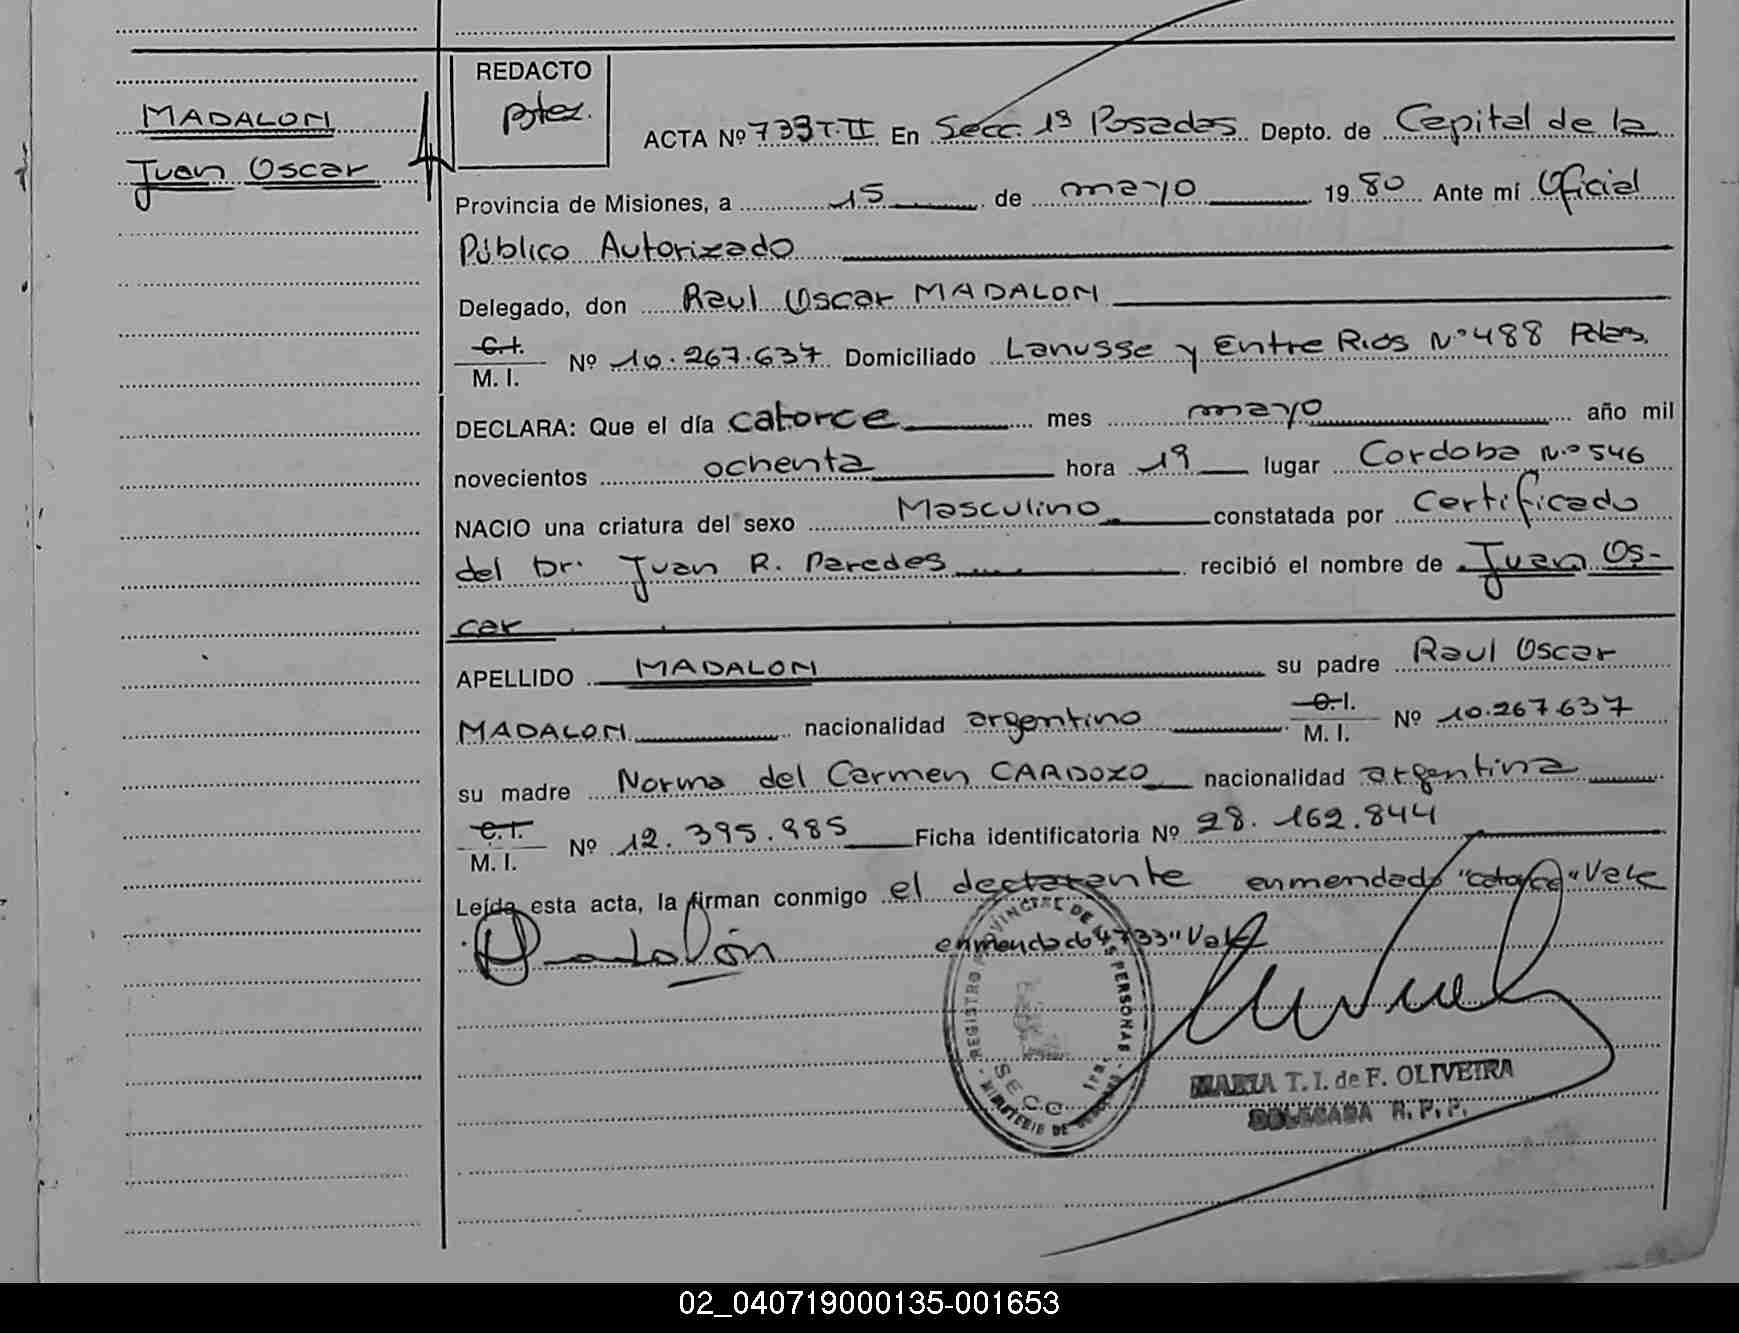 MADALON
Juan Oscar
REDACTO
ACTA Nº 733 T. II En Secc. 1ª Posadas Depto. de Capital de la
Provincia de Misiones, a 15 de mayo 1980 Ante mí Oficial
Público Autorizado
Delegado, don Raul Oscar MADALON
C.I.
M. I. Nº 10.267.637 Domiciliado Lanusse y Entre Rios Nº 488 Pdas.
DECLARA: Que el día catorce mes mayo año mil
novecientos ochenta hora 19 lugar Cordoba Nº 546
NACIO una criatura del sexo Masculino constatada por Certificado
del Dr. Juan R. Paredes recibió el nombre de Juan Os-
car
APELLIDO MADALON su padre Raul Oscar
MADALON nacionalidad argentino C.I.
M. I. Nº 10.267.637
su madre Norma del Carmen CARDOZO nacionalidad argentina
C.I.
M. I. Nº 12.395.985 Ficha identificatoria Nº 28.162.844
Leída esta acta, la firman conmigo el declarante enmendado "catorce" Vale
enmendado "733" Vale
Madalón
REGISTRO PROVINCIAL DE LAS PERSONAS
MINISTERIO DE GOBIERNO
SECC. 1ra.
MARIA T. I. de F. OLIVEIRA
DELEGADA R. P. P.
02_040719000135-001653